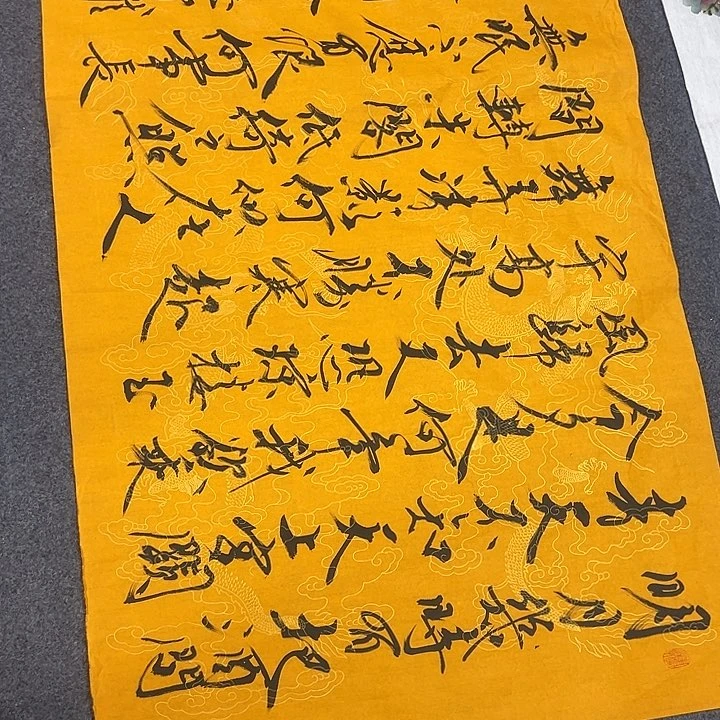 明月幾時有把酒問
青天不知天上宮闕
今夕是何年我欲乘
風歸去又恐瓊樓玉
宇高處不勝寒起
舞弄清影何似在人
間轉朱閣低綺戶照
無眠不應有恨何事長